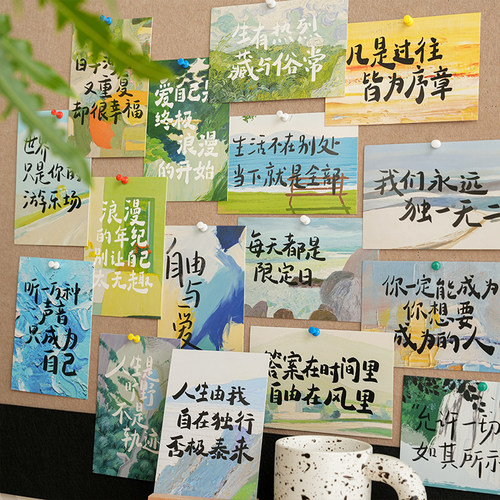 生有热烈
藏与俗常
凡是过往
皆为序章
又重复
却很幸福
爱自己是
终极浪漫
的开始
世界
只是你的
游乐场
生活不在别处
当下就是全部
我们永远
独一无二
浪漫
的年纪
别让自己
太无趣
自由
与
爱
每天都是
限定日
听一万种
声音
只成为
自己
你一定能成为
你想要
成为的人
人生是
旷野
不是
轨迹
答案在时间里
自由在风里
人生由我
自在独行
否极泰来
允许一切
如其所示